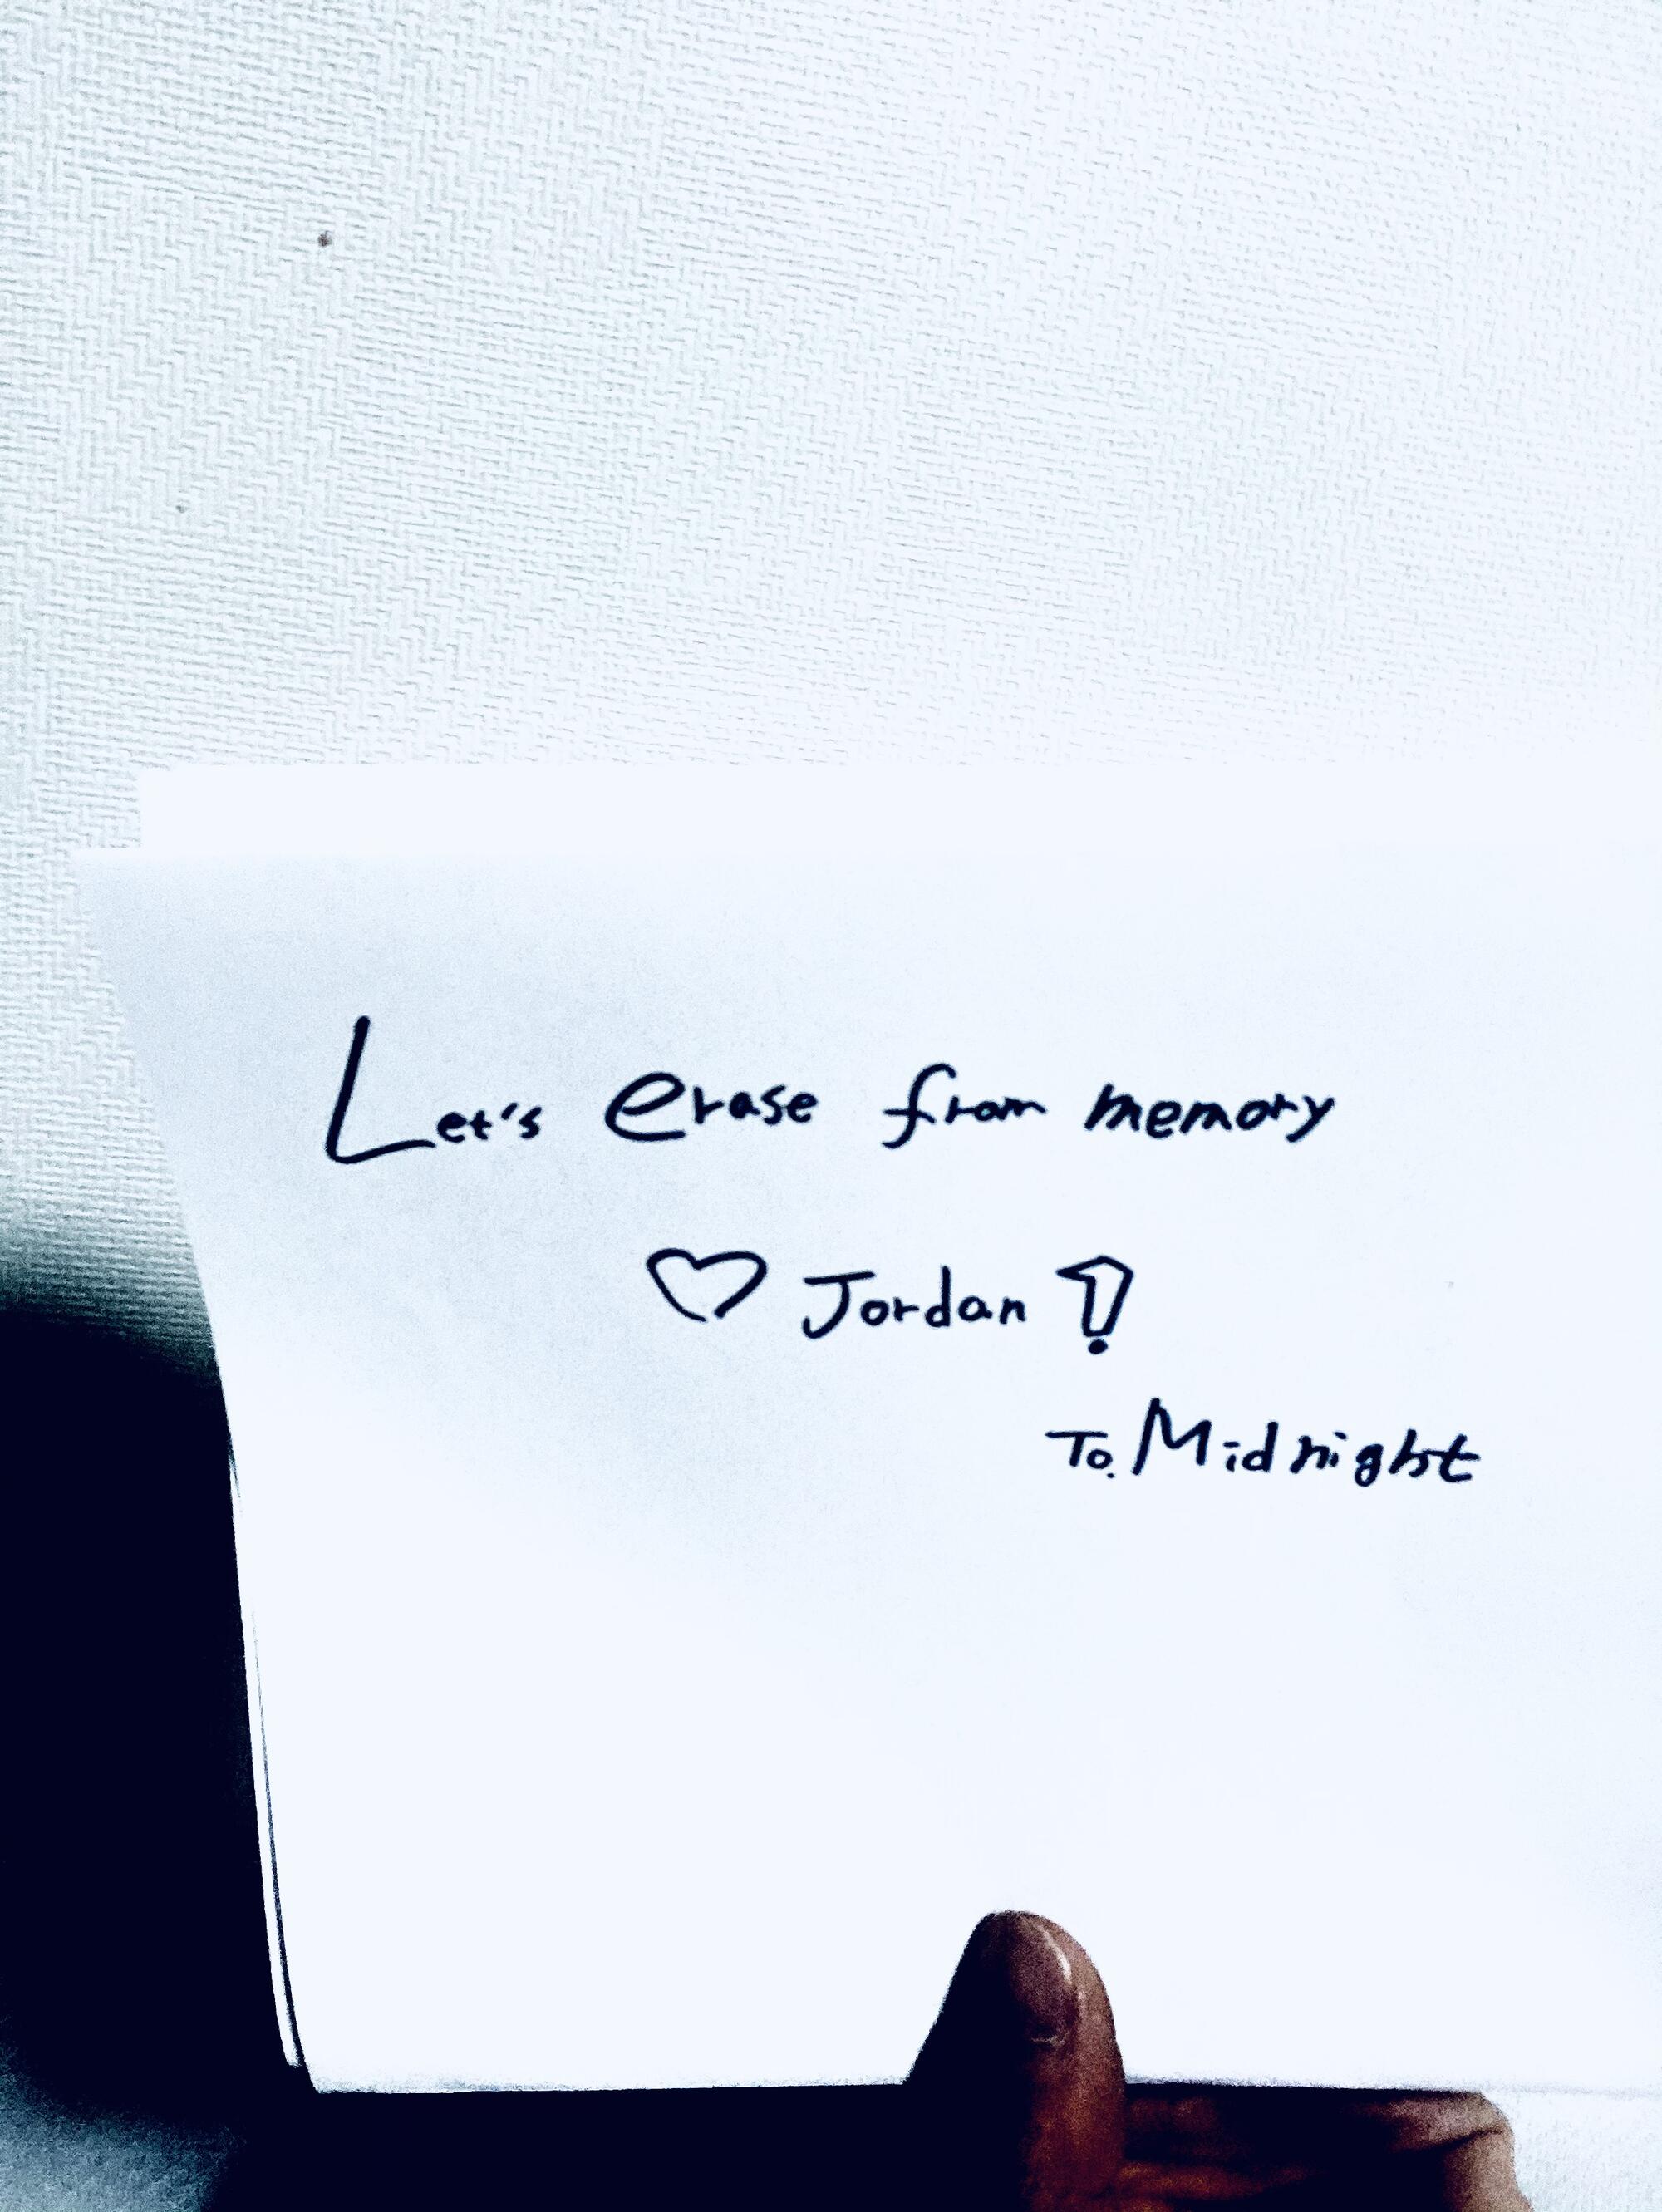 Let's erase from memory
♡ Jordan !
To. Midnight